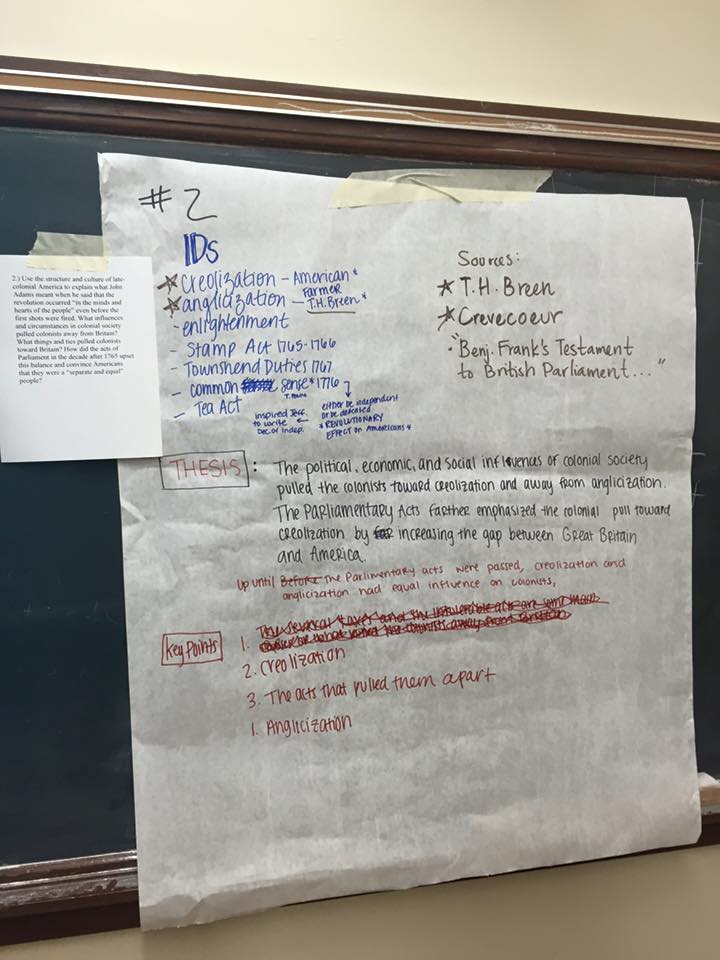 # 2
IDs
★ Creolization - American *
Farmer
★ anglicization - T.H. Breen *
- enlightenment
- Stamp Act 1765-1766
- Townshend Duties 1767
- common sense * 1776
T. Paine
- Tea Act
inspired Jeff.
to write
Dec. of Indep.
either be independent
or be defeated
* REVOLUTIONARY
EFFECT on Americans *
Sources:
★ T.H. Breen
★ Crevecoeur
- "Benj. Frank's Testament
to British Parliament..."
2.) Use the structure and culture of late-
colonial America to explain what John
Adams meant when he said that the
revolution occurred "in the minds and
hearts of the people" even before the
first shots were fired. What influences
and circumstances in colonial society
pulled colonists away from Britain?
What things and ties pulled colonists
toward Britain? How did the acts of
Parliament in the decade after 1765 upset
this balance and convince Americans
that they were a "separate and equal"
people?
THESIS: The political, economic, and social influences of colonial society
pulled the colonists toward creolization and away from anglicization.
The Parliamentary Acts farther emphasized the colonial pull toward
creolization by increasing the gap between Great Britain
and America.
Up until Before the Parlimentary acts were passed, creolization and
anglicization had equal influence on colonists,
Key Points
1.
2. Creolization
3. The acts that pulled them apart
1. Anglicization